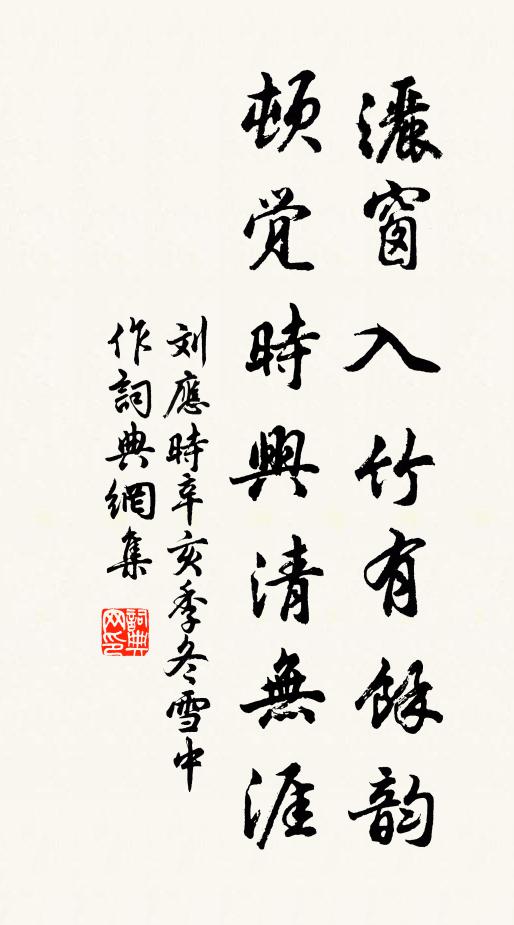 灑窗入竹有餘韵
頓觉時興清無涯
刘應時辛亥季冬雪中
作詞典網集
詞典
网印